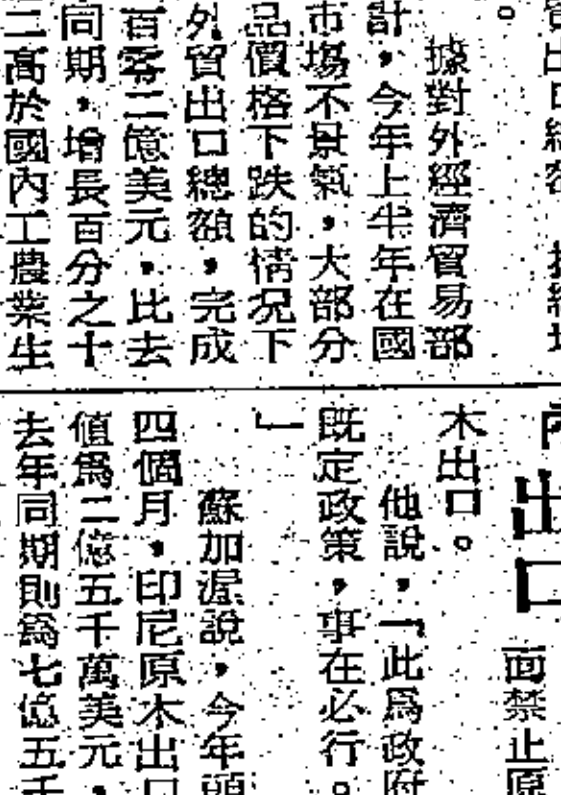 貿出口總額
據對外經濟貿易部
計，今年上半年在國
市場不景氣，大部分
品價格下跌的情況下
外貿出口總額，完成
百零二億美元，比去
同期，增長百分之十
二高於國內工農業生
出口
面禁止原
木出口。
他說，「此爲政府
既定政策，事在必行。
」
蘇加渥說，今年頭
四個月，印尼原木出口
值爲二億五千萬美元，
去年同期則爲七億五千